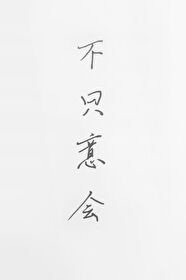 不只意会